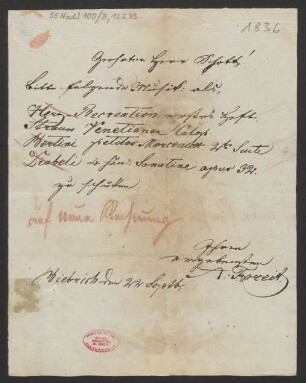 55 Nachl 100/B,
1836
Geehrter Herr Schott!
bitte folgende Musik als,
Herz Recreation erstes Heft
Strauss Venetianer Galop
Bertini petites Morceaux 2te Suite
Diabelli 4 händ. Sonatine opus 32.
zu schicken
auf neue Rechnung
Ihren
ergebensten
Biebrich den 22 Septb.